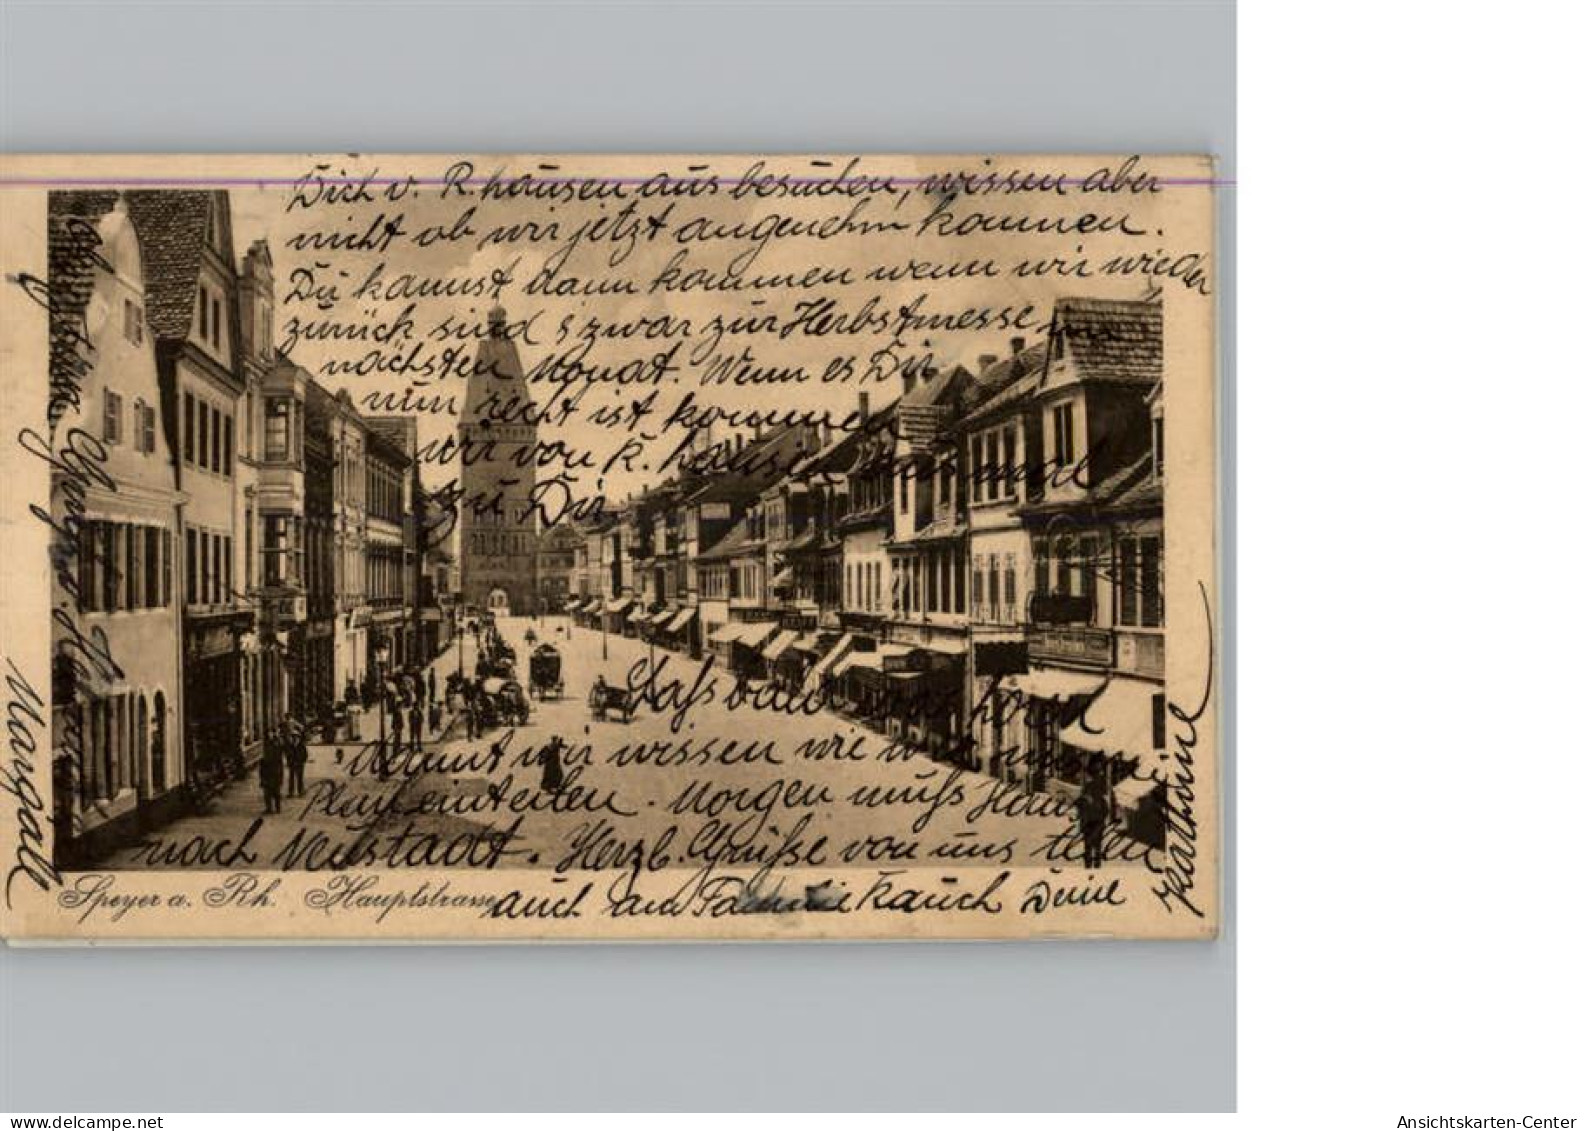 Dich v. R.hausen aus besuchen, wissen aber
nicht ob wir jetzt angenehm kommen.
Du kannst dann kommen wenn wir wieder
zurück sind & zwar zur Herbstmesse im
nächsten Monat. Wenn es Dir
nun recht ist kommen
wir von R. hausen aus mal
zu Dir
Lass bald was hören
damit wir wissen wie wir unsern
Plan einteilen. Morgen muss Hans
nach Neustadt. Herzl. Grüsse von uns allen
auch an Familie Kauch Deine
Kathrine
Speyer a. Rh. Hauptstrasse
Margall
Ansichtskarten-Center